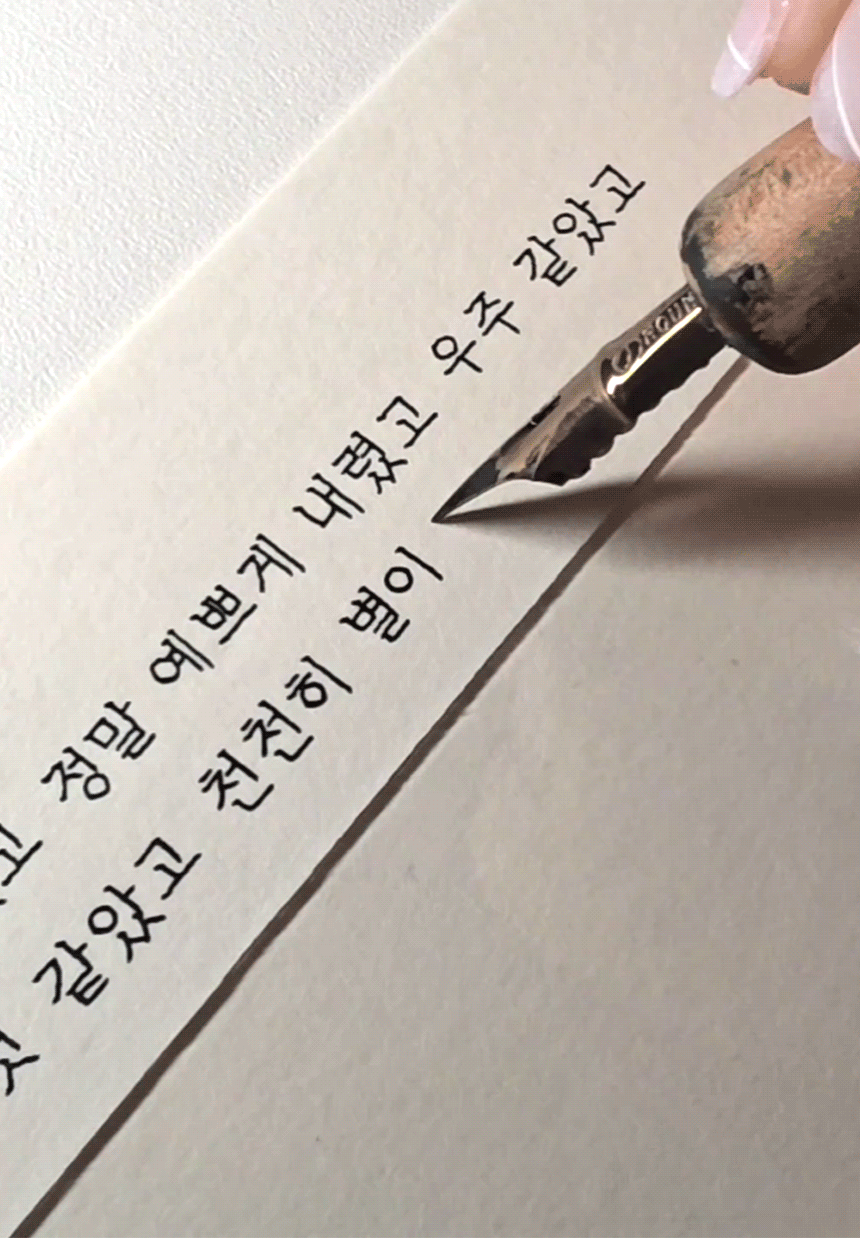 정말 예쁘게 내렸고 우주 같았고
같았고 천천히 별이